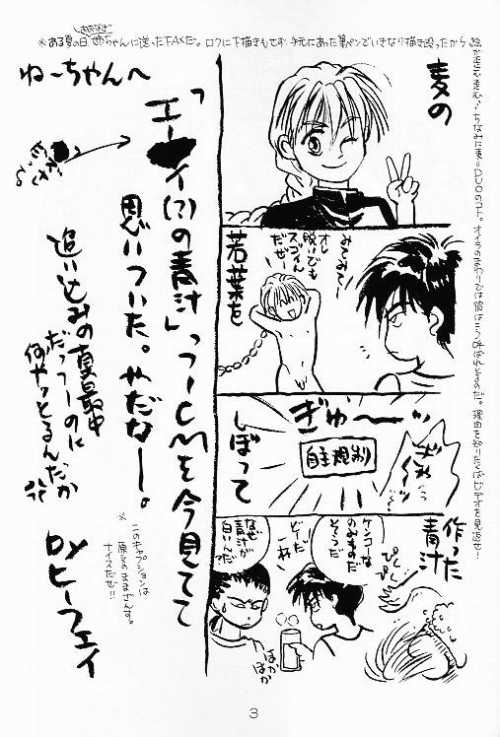 ※ある夏の日姉ちゃんに送ったFAXだ。ロクに下描きもせず、手元にあった筆ペンでいきなり描き殴ったから
ちなみに麦＝DUOのコト。オイラのまわりでは彼はこう呼ばれてるのだ。理由を知りたくばビデオを見返せ！
麦の
みてみてー
オレ
脱いでも
スゴイん
だぜー
若葉を
ぎゅ〜〜ッ
自主規制
ぎゃあ
しぼって
作った
青汁
ぴくぴく
ケンコーな
のみものだ
そうだ
どーだ
なぜ
青汁が
白いんだ
ほかほか
ねーちゃんへ
「エーイ(?)の青汁」っつーCMを今見てて
思いついた。やだなー。
追い込みの真最中
だっつーのに
何やっとるんだか
※
このキャプションは
原文のまんまっす。
ナイスだぜ!!
byヒーフェイ
3